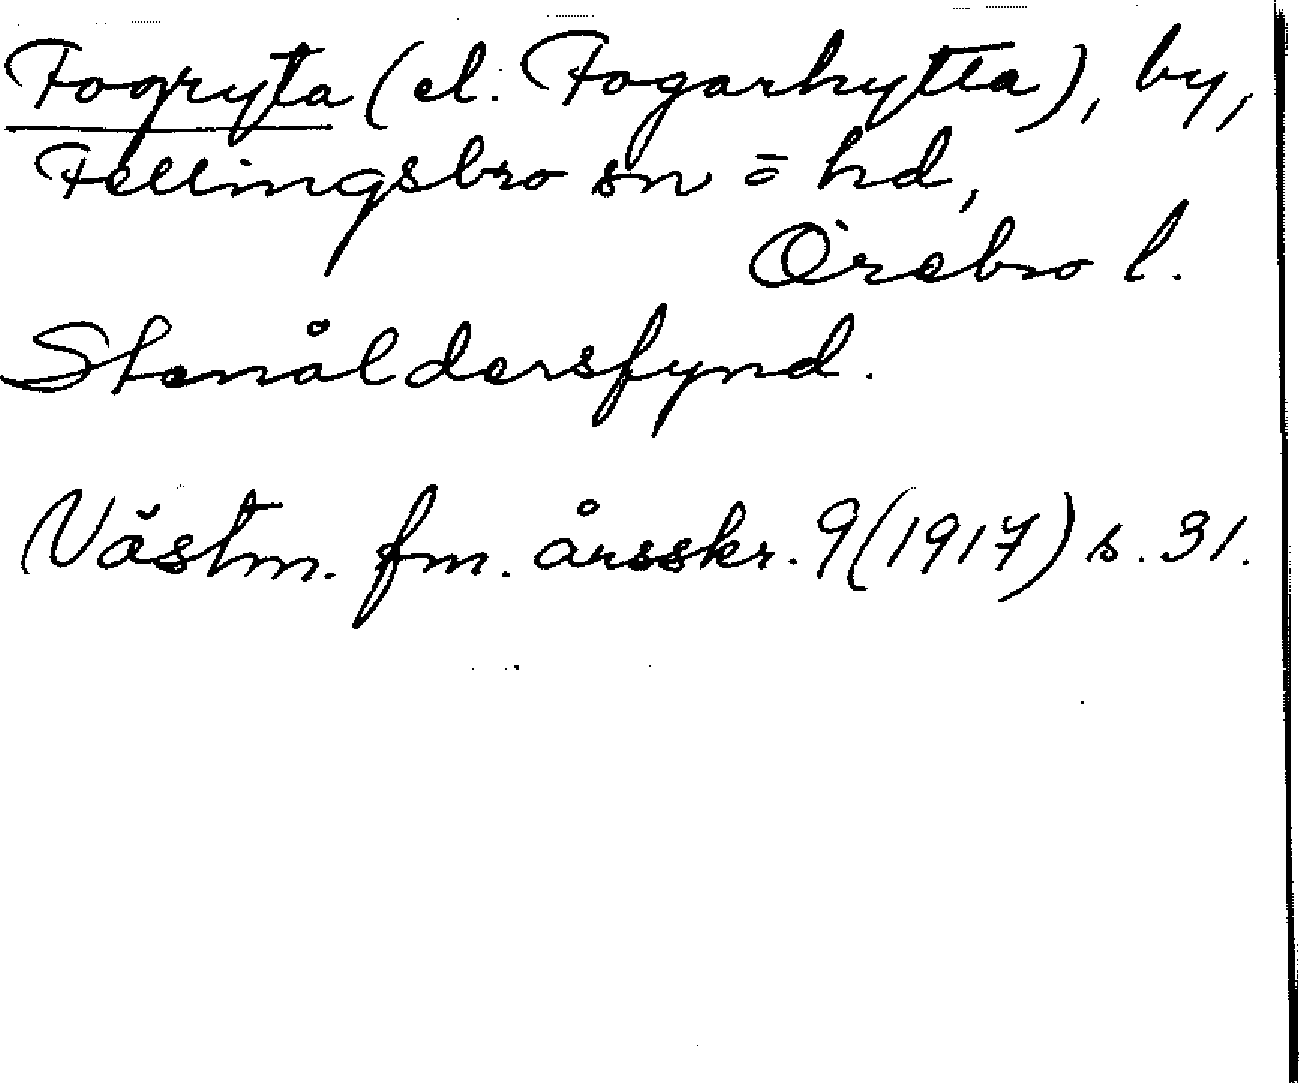 Fogryta (el. Fogarhytta), by,
Fellingsbro sn o hd,
Örebro l.
Stenåldersfynd.
Västm. fm. årsskr. 9 (1917) s. 31.